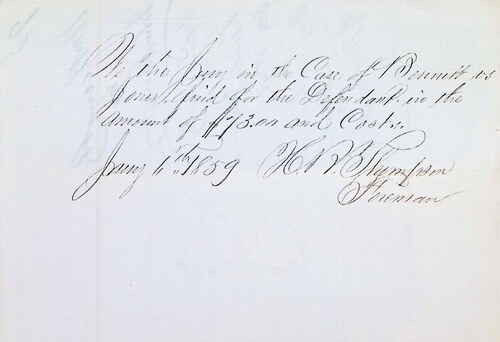 We the Jury in the Case of Bennett vs
Jones, find for the Defendant in the
amount of $73.00 and Costs.
Jany 6th 1859 H. R. Thompson
Foreman